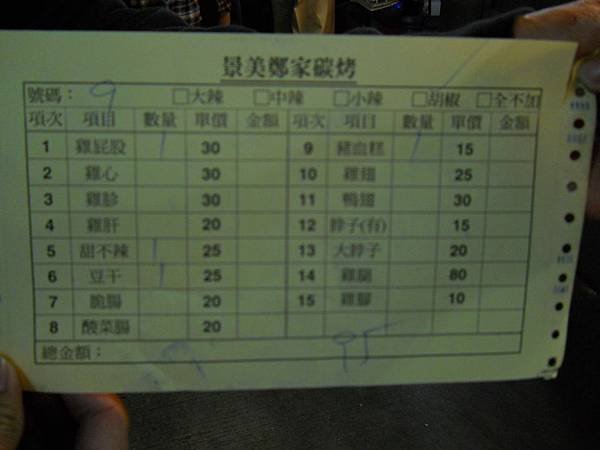 景美鄭家碳烤
號碼： 9 □大辣 □中辣 □小辣 □胡椒 □全不加
項次 項目 數量 單價 金額 項次 項目 數量 單價 金額
1 雞屁股 1 30 9 豬血糕 1 15
2 雞心 30 10 雞翅 25
3 雞胗 30 11 鴨翅 30
4 雞肝 20 12 脖子(有) 15
5 甜不辣 1 25 13 大脖子 20
6 豆干 1 25 14 雞腿 80
7 脆腸 20 15 雞腳 10
8 酸菜腸 20
總金額： 95